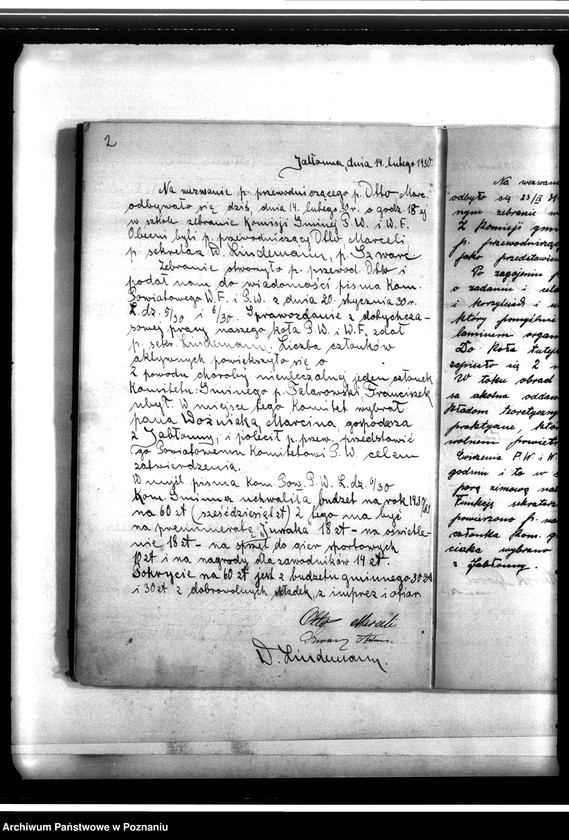 2
Jabłonna, dnia 14. lutego 1930.
Na wezwanie p. przewodniczącego p. Otto Marc.
odbywało się dziś, dnia 14. lutego 30r. o godz. 18-ej
w szkole zebranie Komisji Gminej P.W. i W.F.
Obecni byli p. przewodniczący Otto Marceli,
p. sekretarz D. Lindemann, p. Szwarc
Zebranie otworzył p. przewod. Otto i
podał nam do wiadomości pisma Kom.
Powiatowego W.F. i P.W. z dnia 20. stycznia 30r.
L.dz. 5/30 i 6/30. Sprawozdanie z dotychcza-
sowej pracy naszego koła P.W. i W.F. zdał
p. sekr. Lindemann. Liczba członków
aktywnych powiększyła się o
Z powodu choroby nieuleczalnej jeden członek
Komitetu Gminego p. Szlarowski Franciszek
ubył. W miejsce tego Komitet wybrał
pana Woźniaka Marcina gospodarza
z Jabłonny, i polecił p. przew. przedstawić
go Powiatowemu Komitetowi P.W. celem
zatwierdzenia.
W myśl pisma Kom. Pow. P.W. L.dz. 6/30
Kom. Gminna uchwaliła budżet na rok 1930/31
na 60 zł (sześćdziesiąt zł) z tego ma być
na prenumeratę „Junaka" 18 zł - na oświetle-
nie 18 zł - na sprzęt do gier sportowych
10 zł i na nagrody dla zawodników 14 zł.
Pokrycie na 60 zł jest z budżetu gminnego 30 zł
i 30 zł z dobrowolnych składek, z imprez i ofiar
Otto Marceli
Szwarc
D. Lindemann.
Na wezwanie
odbyło się 23/II 31
nym zebranie
Z Komisji
p. przewodnicząc
jako przedstawi
Po zagajeniu
o zadaniu i cel
i korzyściach i
który pomyślnie
laminem organ
Do Koła tutej
zapisało się 2
W toku obrad
sa szkolna oddan
kładom teoretyczn
praktyczne, któ
wolnem powietrz
Ćwiczenia P.W. i W.
godzin i to w
porą zimową na
Funkcję sekretarz
powierzono p. na
członka Kom. g
ciaka wybrano
z Jabłonny.
Archiwum Państwowe w Poznaniu